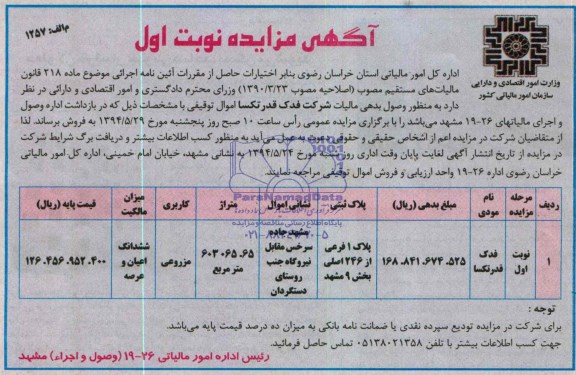 م‌الف: ۱۲۵۷
آگهی مزایده نوبت اول
وزارت امور اقتصادی و دارایی
سازمان امور مالیاتی کشور
اداره کل امور مالیاتی استان خراسان رضوی بنابر اختیارات حاصل از مقررات آئین نامه اجرائی موضوع ماده ۲۱۸ قانون
مالیات‌های مستقیم مصوب (اصلاحیه مصوب ۱۳۹۰/۳/۲۳) وزرای محترم دادگستری و امور اقتصادی و دارائی در نظر
دارد به منظور وصول بدهی مالیات شرکت فدک قدر تکسا اموال توقیفی با مشخصات ذیل که در بازداشت اداره وصول
و اجرای مالیاتهای ۲۶-۱۹ مشهد می‌باشد را با برگزاری مزایده عمومی رأس ساعت ۱۰ صبح روز پنجشنبه مورخ ۱۳۹۴/۵/۲۹ به فروش برساند. لذا
از متقاضیان شرکت در مزایده اعم از اشخاص حقیقی و حقوقی به عمل می‌آید به منظور کسب اطلاعات بیشتر و دریافت برگ شرایط شرکت
در مزایده از تاریخ انتشار آگهی لغایت پایان وقت اداری روز شنبه مورخ ۱۳۹۴/۵/۲۴ به نشانی مشهد، خیابان امام خمینی، اداره کل امور مالیاتی
خراسان رضوی اداره ۲۶-۱۹ واحد ارزیابی و فروش اموال توقیفی مراجعه نمایند.
ردیف مرحله مزایده نام مودی مبلغ بدهی (ریال) پلاک ثبتی نشانی اموال متراژ کاربری میزان مالکیت قیمت پایه (ریال)
۱ نوبت اول فدک قدرتکسا ۱۶۸.۸۴۱.۶۷۴.۵۲۵ پلاک ۱ فرعی از ۲۴۶ اصلی بخش ۹ مشهد مشهد جاده سرخس مقابل نیروگاه جنب روستای دستگردان ۶۰۳.۰۶۵.۶۵ متر مربع مزروعی ششدانگ اعیان و عرصه ۱۲۶.۴۵۶.۹۵۲.۴۰۰
ParsNamadData
پایگاه اطلاع رسانی مناقصه و مزایده
۰۲۱-۸۸۳۴۹۶۷۰-۵
توجه :
برای شرکت در مزایده تودیع سپرده نقدی یا ضمانت نامه بانکی به میزان ده درصد قیمت پایه می‌باشد.
جهت کسب اطلاعات بیشتر با تلفن ۰۵۱۳۸۰۲۱۳۵۸ تماس حاصل فرمائید.
رئیس اداره امور مالیاتی ۲۶-۱۹ (وصول و اجراء) مشهد